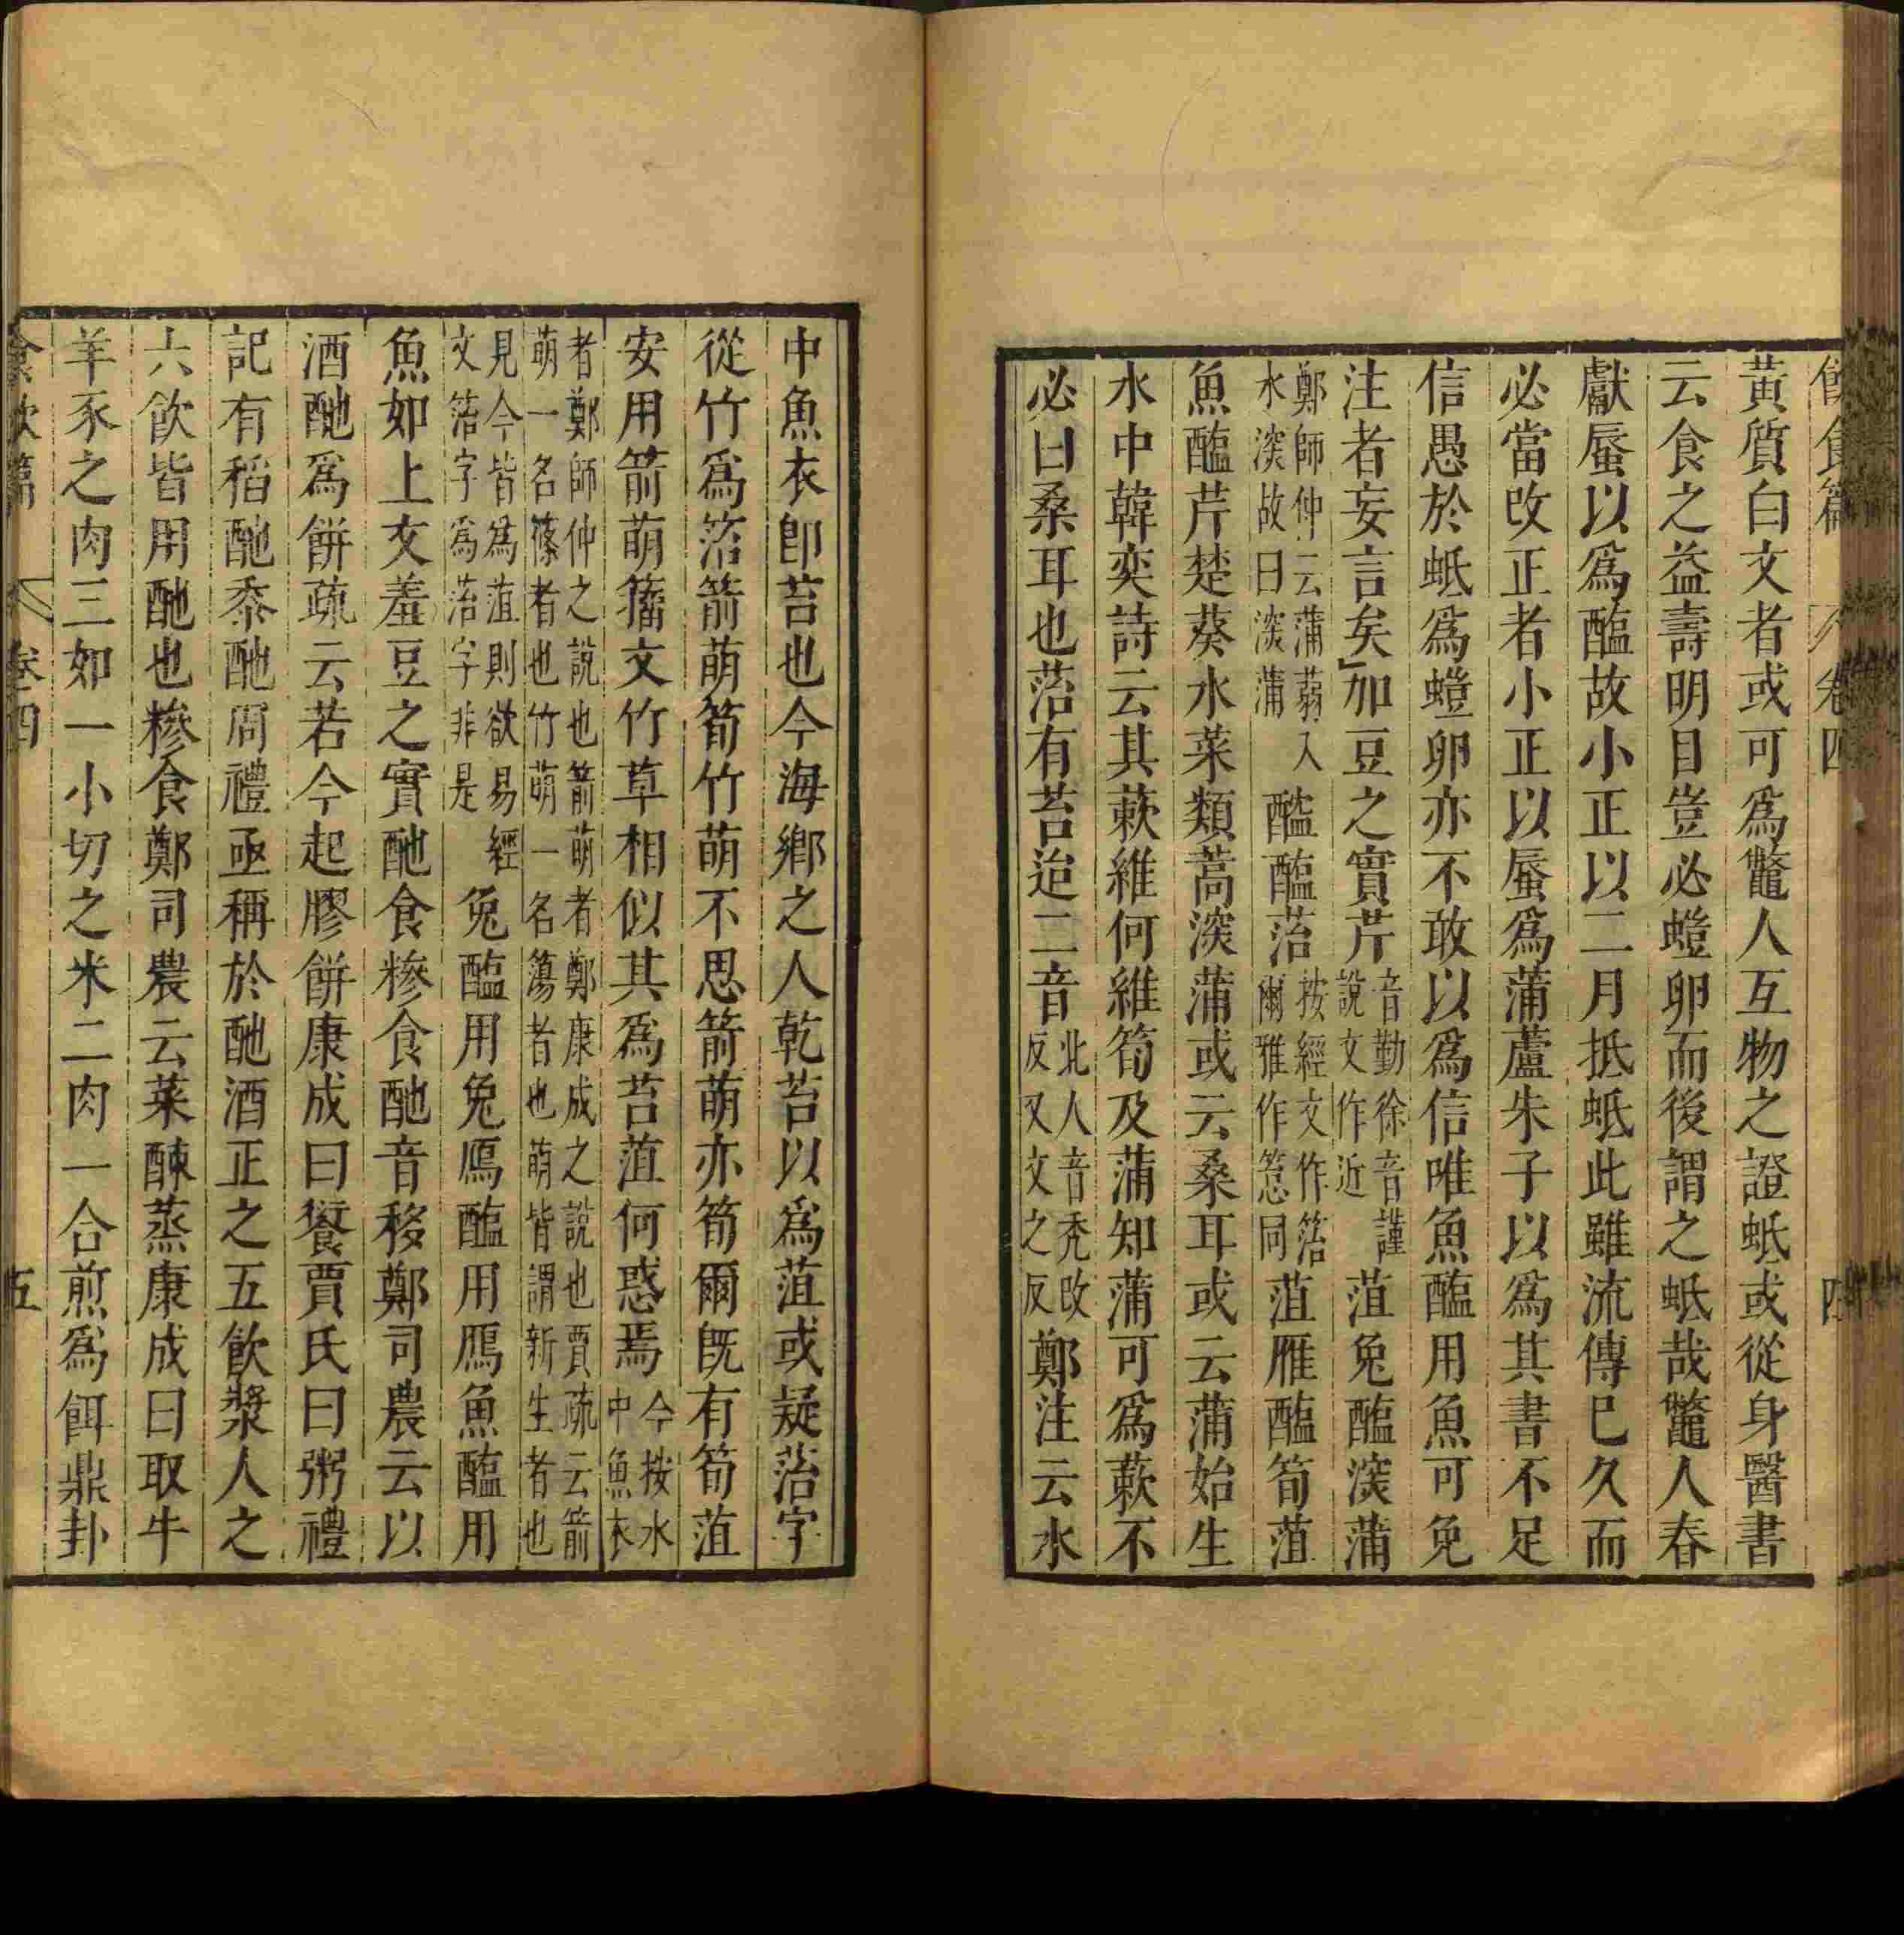 黃質白文者或可爲鼈人互物之證蚳或從身醫書
云食之益壽明目豈必螘卵而後謂之蚳哉鼈人春
獻蜃以爲醢故小正以二月抵蚳此雖流傳已久而
必當改正者小正以蜃爲蒲蘆朱子以爲其書不足
信愚於蚳爲螘卵亦不敢以爲信唯魚醢用魚可免
注者妄言矣加豆之實芹音勤徐音謹說文作近菹兔醢深蒲
鄭師仲云蒲蒻入水深故曰深蒲醓醢菭按經文作箈爾雅作篒同菹雁醢筍菹
魚醢芹楚葵水菜類蒿深蒲或云桑耳或云蒲始生
水中韓奕詩云其蔌維何維筍及蒲知蒲可爲蔌不
必曰桑耳也菭有苔迨二音北人音禿改反又文之反鄭注云水
中魚衣卽苔也今海鄉之人乾苔以爲菹或疑菭字
從竹爲箈箭萌筍竹萌不思箭萌亦筍爾旣有筍菹
安用箭萌籀文竹草相似其爲苔菹何惑焉今按水中魚衣
者鄭師仲之說也箭萌者鄭康成之說也賈疏云箭萌一名篠者也竹萌一名簜者也萌皆謂新生者也
見今皆爲菹則欲易經文箈字爲菭字非是兔醢用兔鴈醢用鴈魚醢用
魚如上文羞豆之實酏食糝食酏音移鄭司農云以
酒酏爲餠疏云若今起膠餠康成曰餰賈氏曰粥禮
記有稻酏黍酏周禮亟稱於酏酒正之五飮漿人之
六飮皆用酏也糝食鄭司農云菜餗蒸康成曰取牛
羊豕之肉三如一小切之米二肉一合煎爲餌鼎卦
卷四
五